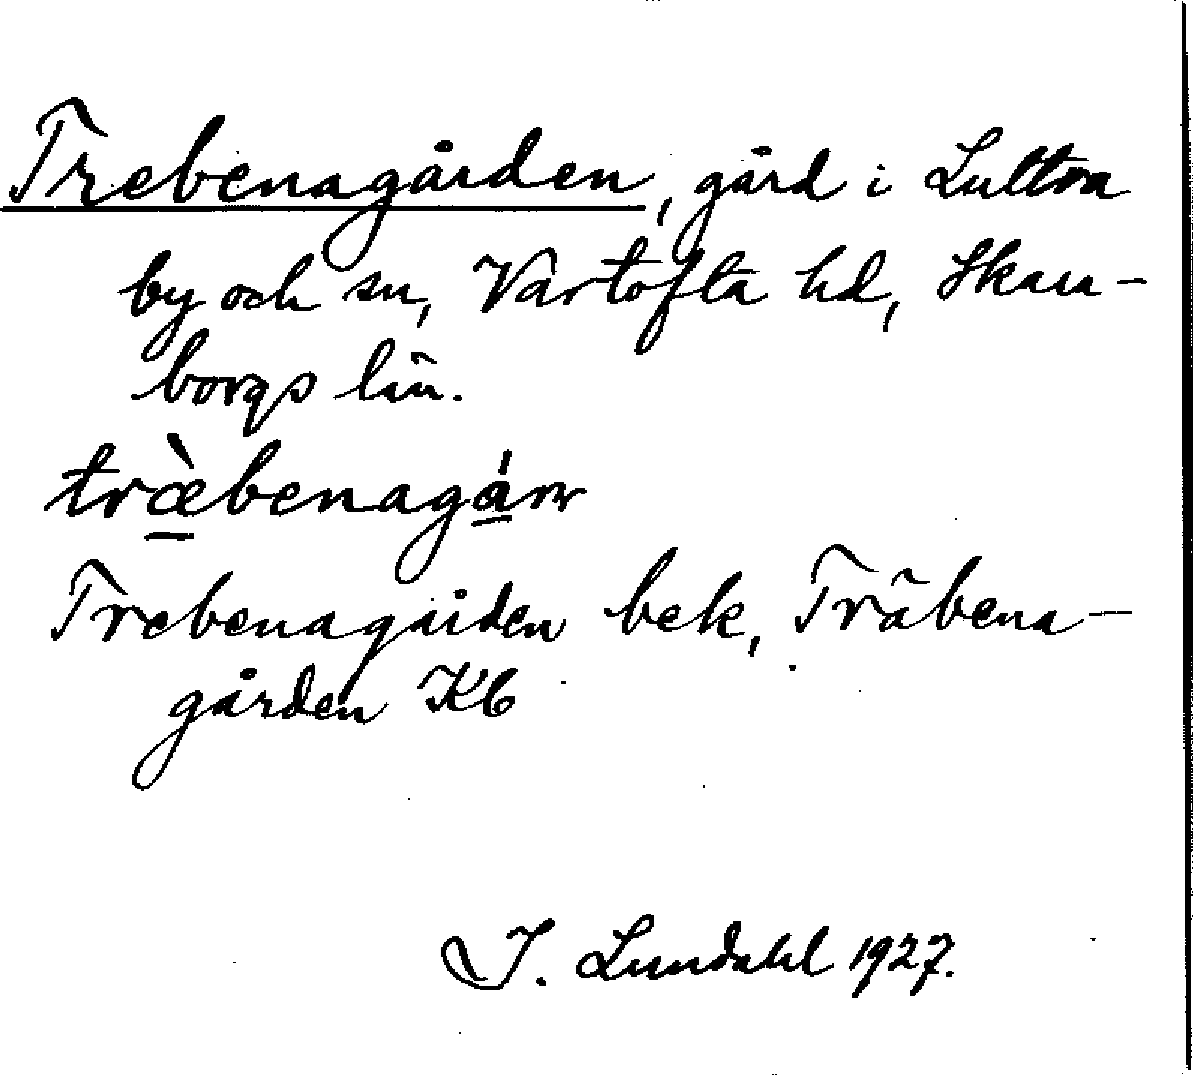 Trebenagården, gård i Luttra
by och sn, Vartofta hd, Skara-
borgs län.
træ̀benagá̱rn
Trebenagården bek, Träbena-
gården Kb
I. Lundahl 1927.